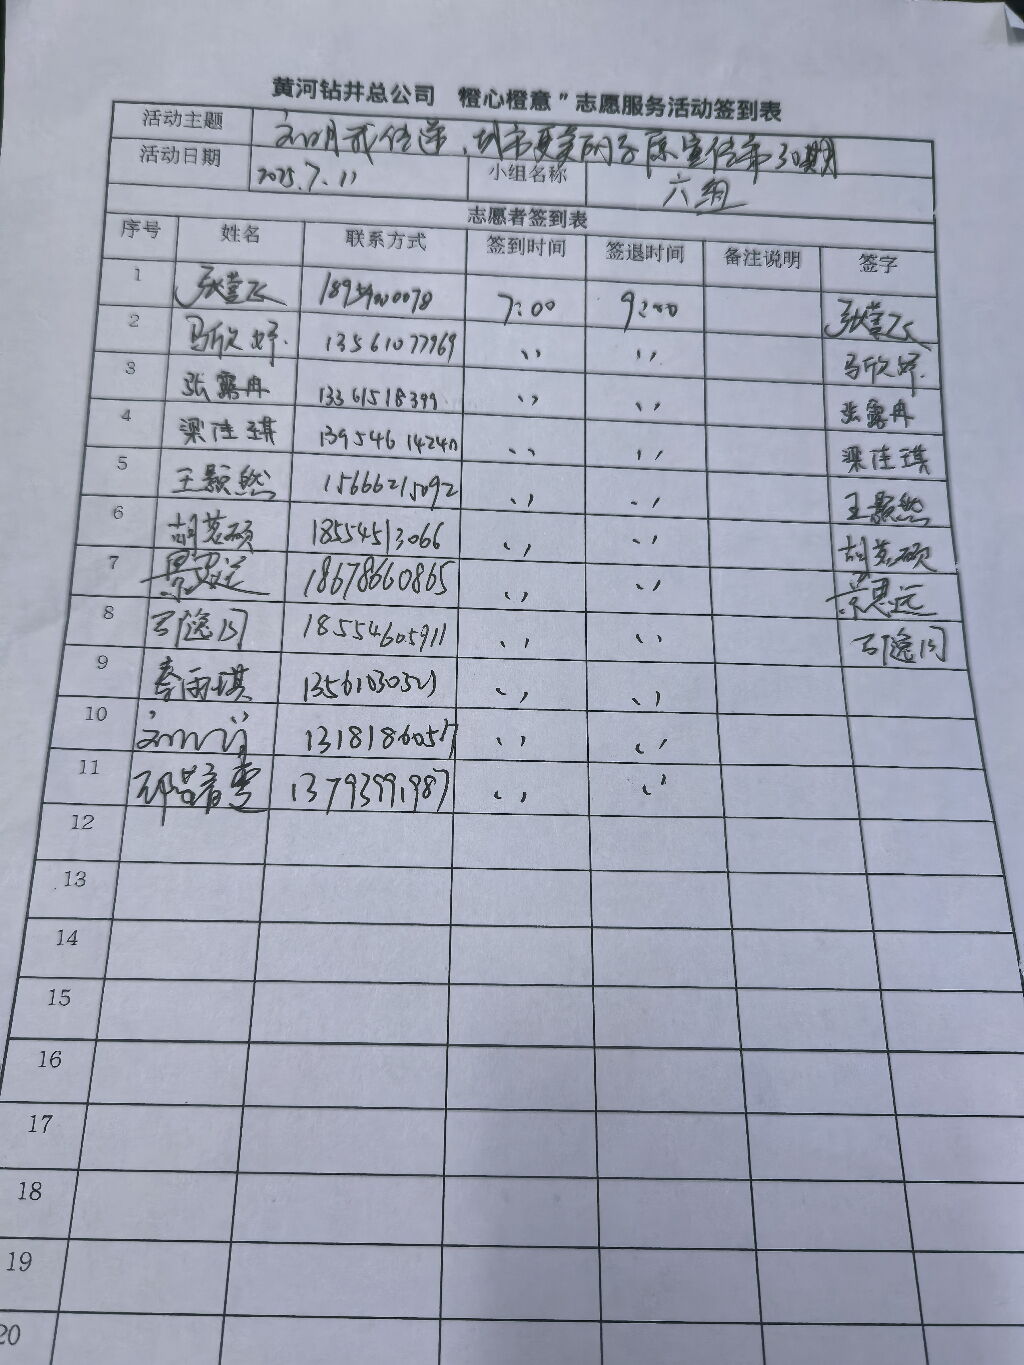 黄河钻井总公司 “橙心橙意”志愿服务活动签到表
活动主题 文明我传递、城市更美丽 宣传第30期
活动日期 2025.7.11 小组名称 六组
志愿者签到表
序号 姓名 联系方式 签到时间 签退时间 备注说明 签字
1 张萱飞 7:00 9:00 张萱飞
2 马欣妤 13561077969 〃 〃 马欣妤
3 张露冉 13361518399 〃 〃 张露冉
4 梁佳琪 〃 〃 梁佳琪
5 王颢然 15666215092 〃 〃 王颢然
6 胡茗硕 18554513066 〃 〃 胡茗硕
7 景思远 18678660865 〃 〃 景思远
8 18554605911 〃 〃
9 李雨琪 13561030521 〃 〃
10 13181860517 〃 〃
11 13793991987 〃 〃
12
13
14
15
16
17
18
19
20